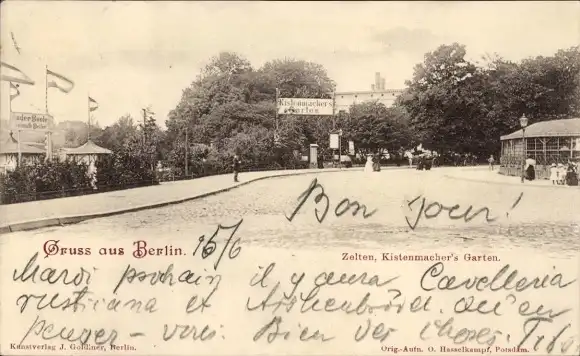 Kistenmacher's
Garten
Bon jour!
Gruss aus Berlin. 15/6
Zelten, Kistenmacher's Garten.
Mardi prochain il y aura Cavelleria
rusticana et
pensez-vous. Bien des choses
Kunstverlag J. Goldiner, Berlin.
Orig.-Aufn. O. Hasselkampf, Potsdam.